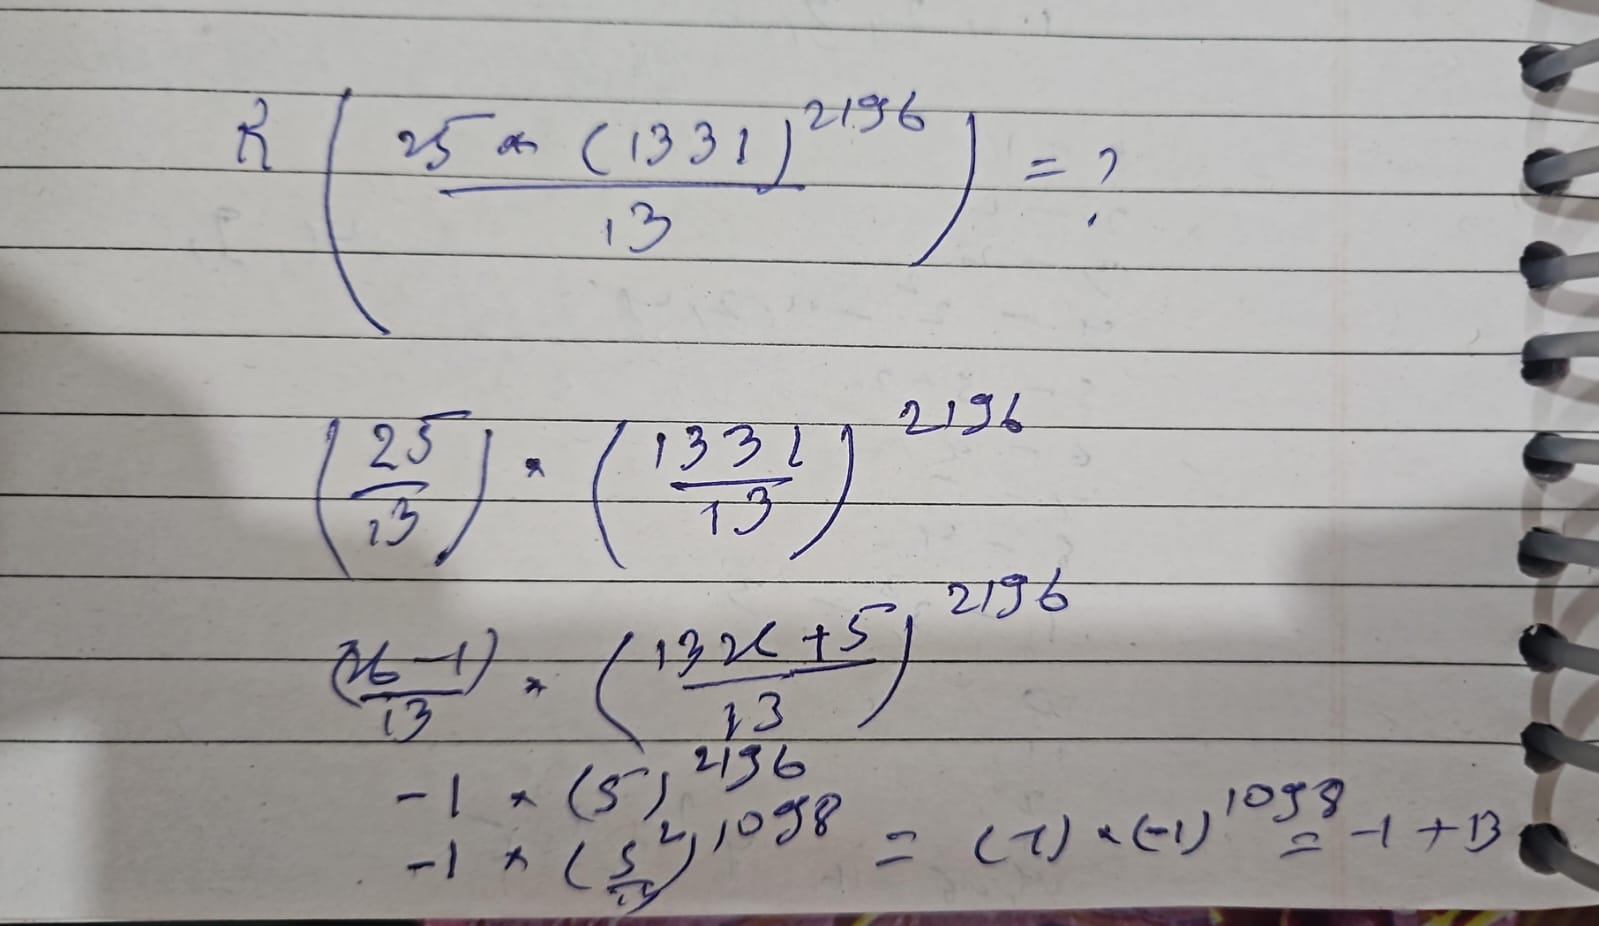 R ( 25 * (1331)^2196 / 13 ) = ?
(25/13) * (1331/13)^2196
(26-1)/13 * ((13x+5)/13)^2196
-1 * (5)^2196
-1 * (5^2/13)^1098 = (-1) * (-1)^1098 = -1 + 13